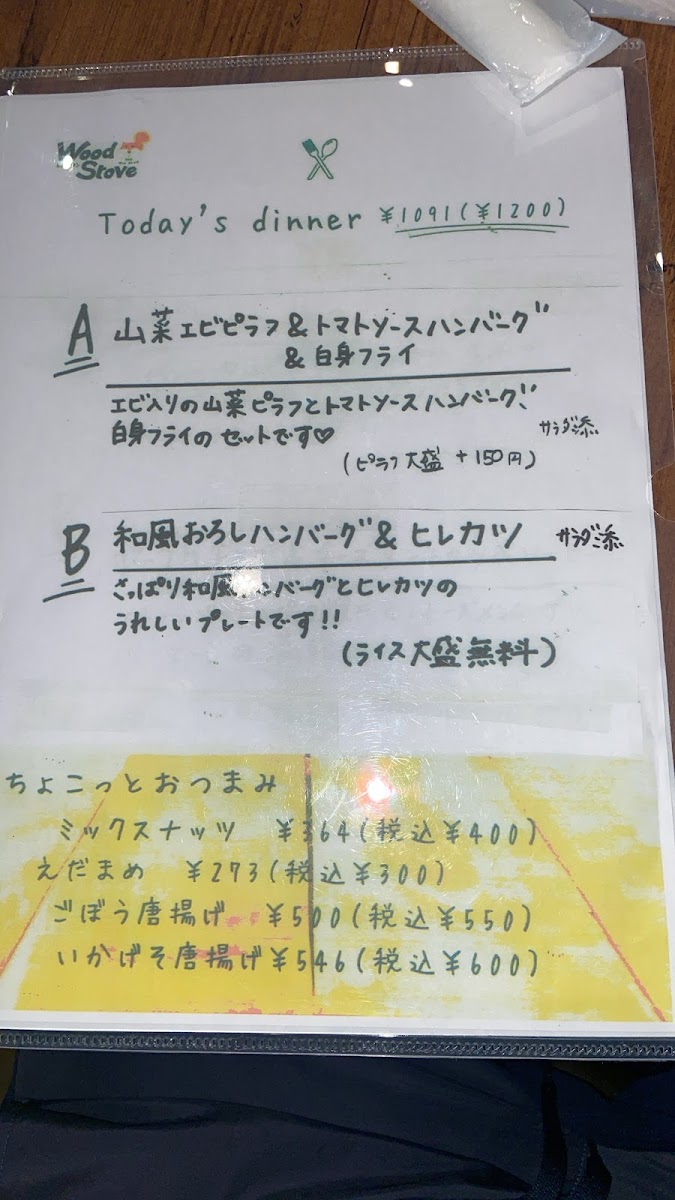 Wood
Stove
Today's dinner ¥1091(¥1200)
A 山菜エビピラフ&トマトソースハンバーグ
&白身フライ
エビ入りの山菜ピラフとトマトソースハンバーグ、
白身フライのセットです♡
サラダ添
(ピラフ大盛 +150円)
B 和風おろしハンバーグ& ヒレカツ サラダ添
さっぱり和風ハンバーグとヒレカツの
うれしいプレートです!!
(ライス大盛無料)
ちょこっとおつまみ
ミックスナッツ ¥364(税込¥400)
えだまめ ¥273(税込¥300)
ごぼう唐揚げ ¥500(税込¥550)
いかげそ唐揚げ¥546(税込¥600)